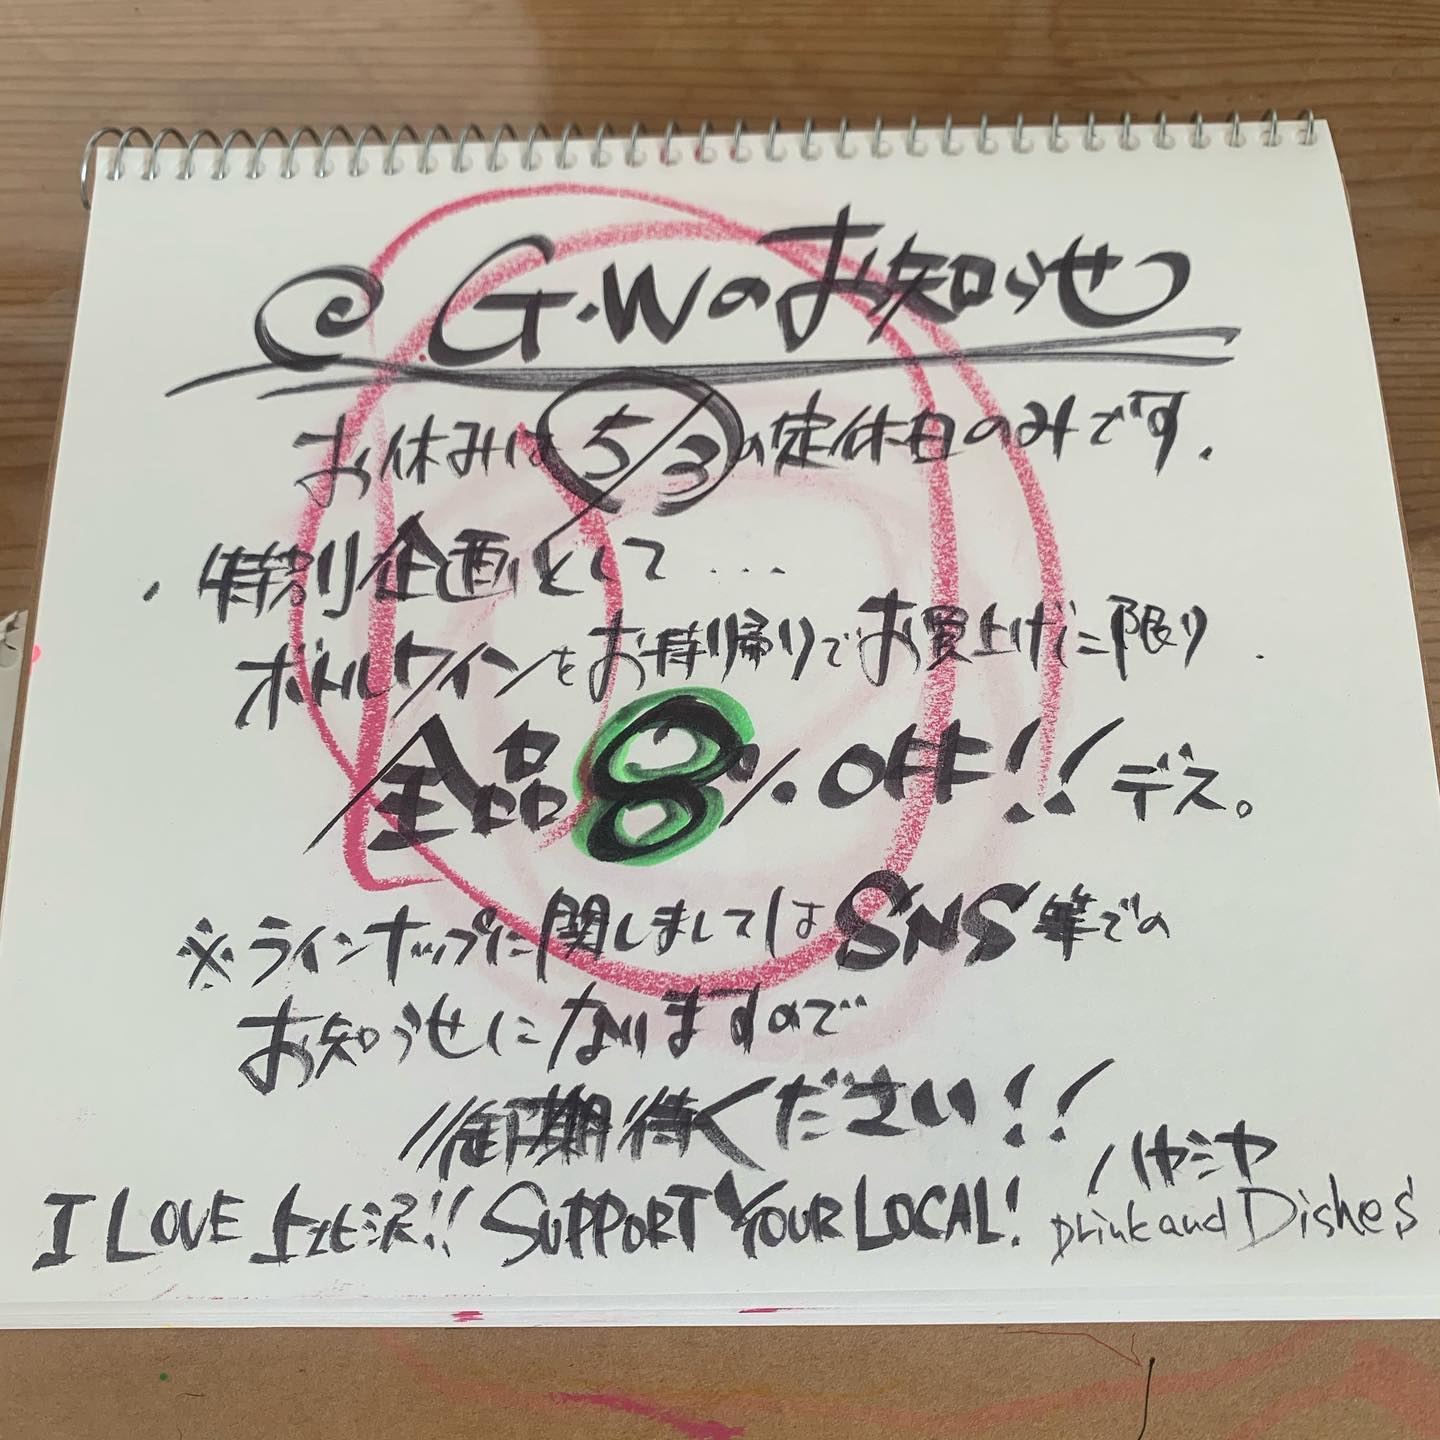 @ G.Wのお知らせ
お休みは 5/3 の定休日のみです.
・特別企画として...
ボトルワインをお持ち帰りでお買上げに限り
全品8%OFF!!デス。
※ラインナップに関しましてはSNS等での
お知らせになりますので
御期待ください!!
I LOVE 上北沢!! SUPPORT YOUR LOCAL!
ハヤミヤ
Drink and Dishes